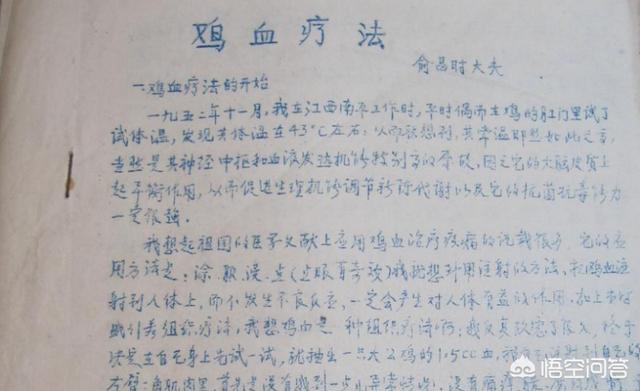 鸡血疗法
俞昌时大夫
一.鸡血疗法的开始
一九五二年十一月,我在江西南平工作时,平时偶而在鸡的肛门里试了
试体温,发现其体温在43°C左右,以而联想到,其常温即然如此之高,
当然是其神经中枢和血液发达机能特别高的原故,因之它的大脑皮质上
起平衡作用,从而促进生理机能调节新陈代谢以及它的抗菌抗毒能力
一定很强.
我想起祖国的医学文献上应用鸡血治疗疾病的记载很多,它的应
用方法是:涂、敷、浸、点(点眼耳 )我就想利用注射的方法,把鸡血注
射到人体上,而不发生不良反应,一定会产生对人体有益的作用,加上
组织疗法,我想鸡血是一种组织疗法吗?我反复
决定在自己身上先试一试,就抽出一只大公鸡的1.5cc血,
悟空问答